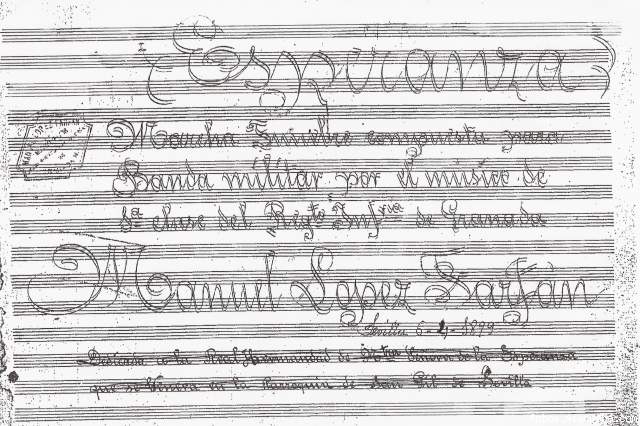 Esperanza
Marcha Fúnebre compuesta para
Banda militar por el músico de
la clase del Regto Infria de Granada
Manuel López Farfán
Sevilla 6 - 1899
Dedicada a la Real Hermandad de Ntra Señora de la Esperanza
que se Venera en la Parroquia de San Gil de Sevilla